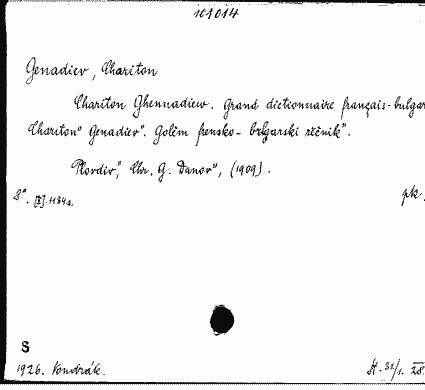 101014
Genadiev, Chariton
Chariton Ghennadiew. Grand dictionnaire français-bulgar
Chariton" Genadiev". Golěm frensko-bŭlgarski rěčnik".
Plovdiv", Chr. G. Danov", (1909).
8°. [I] 1184 s. pk.
S
1926. Kondrák. H. 31/1. 28.